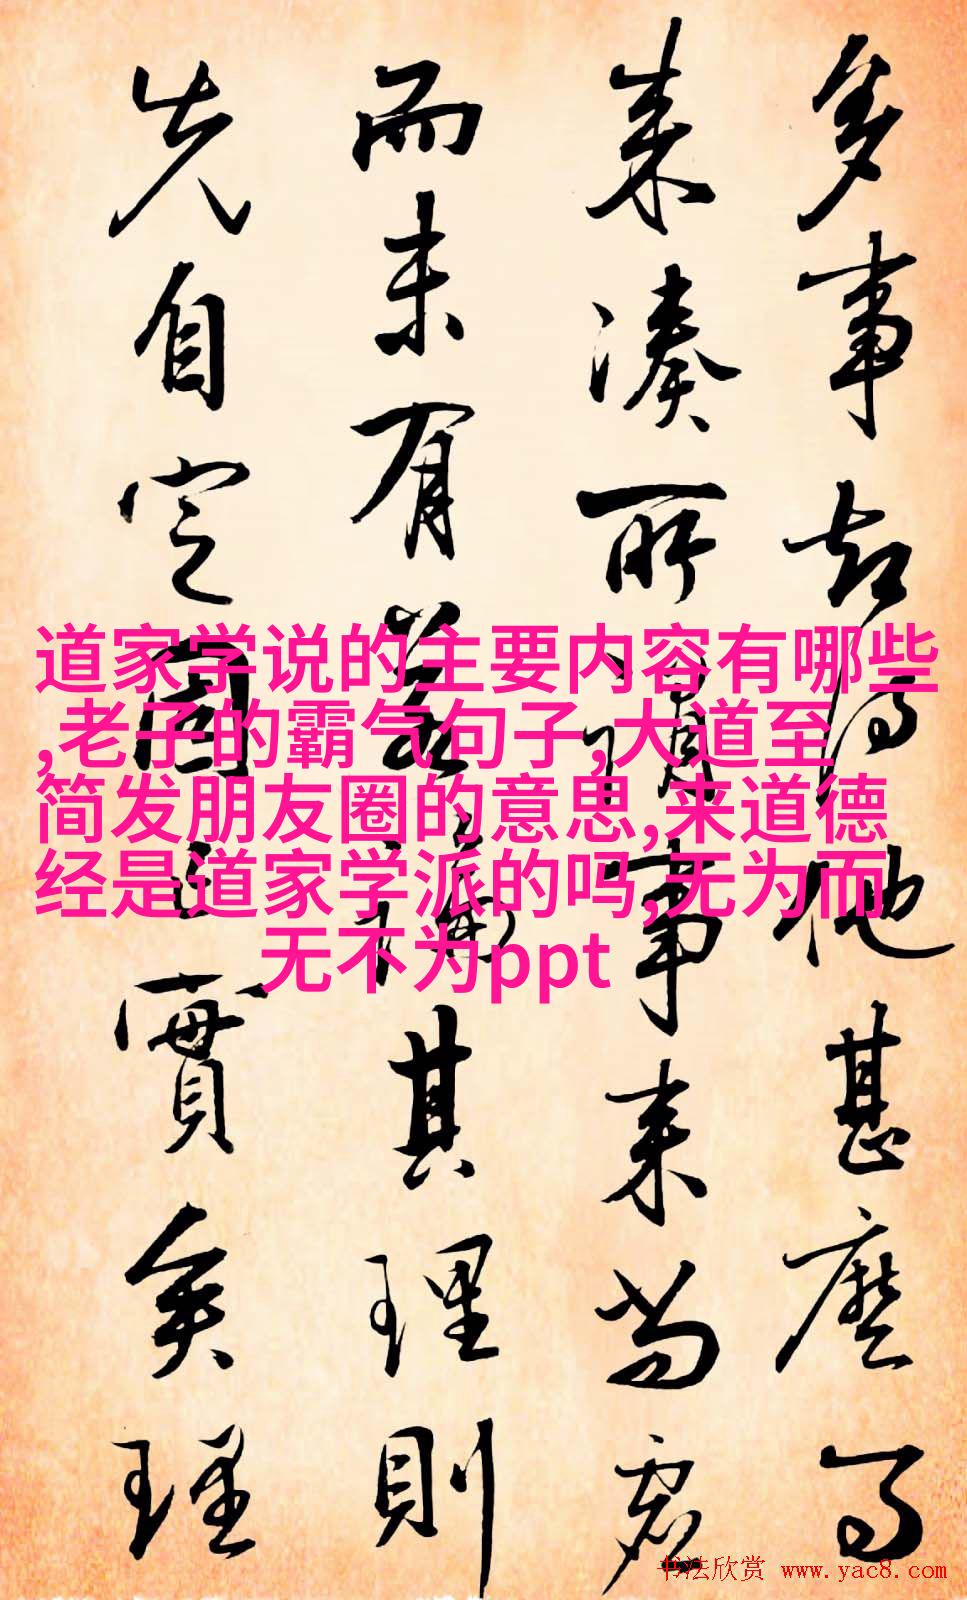 多事却得他甚麽
来湊所謂事来尚虚
而未有蓋其理則
先自定固已實矣理
道家学说的主要内容有哪些
,老子的霸气句子,大道至
简发朋友圈的意思,来道德
经是道家学派的吗,无为而
无不为ppt
书法欣赏 www.yac8.com